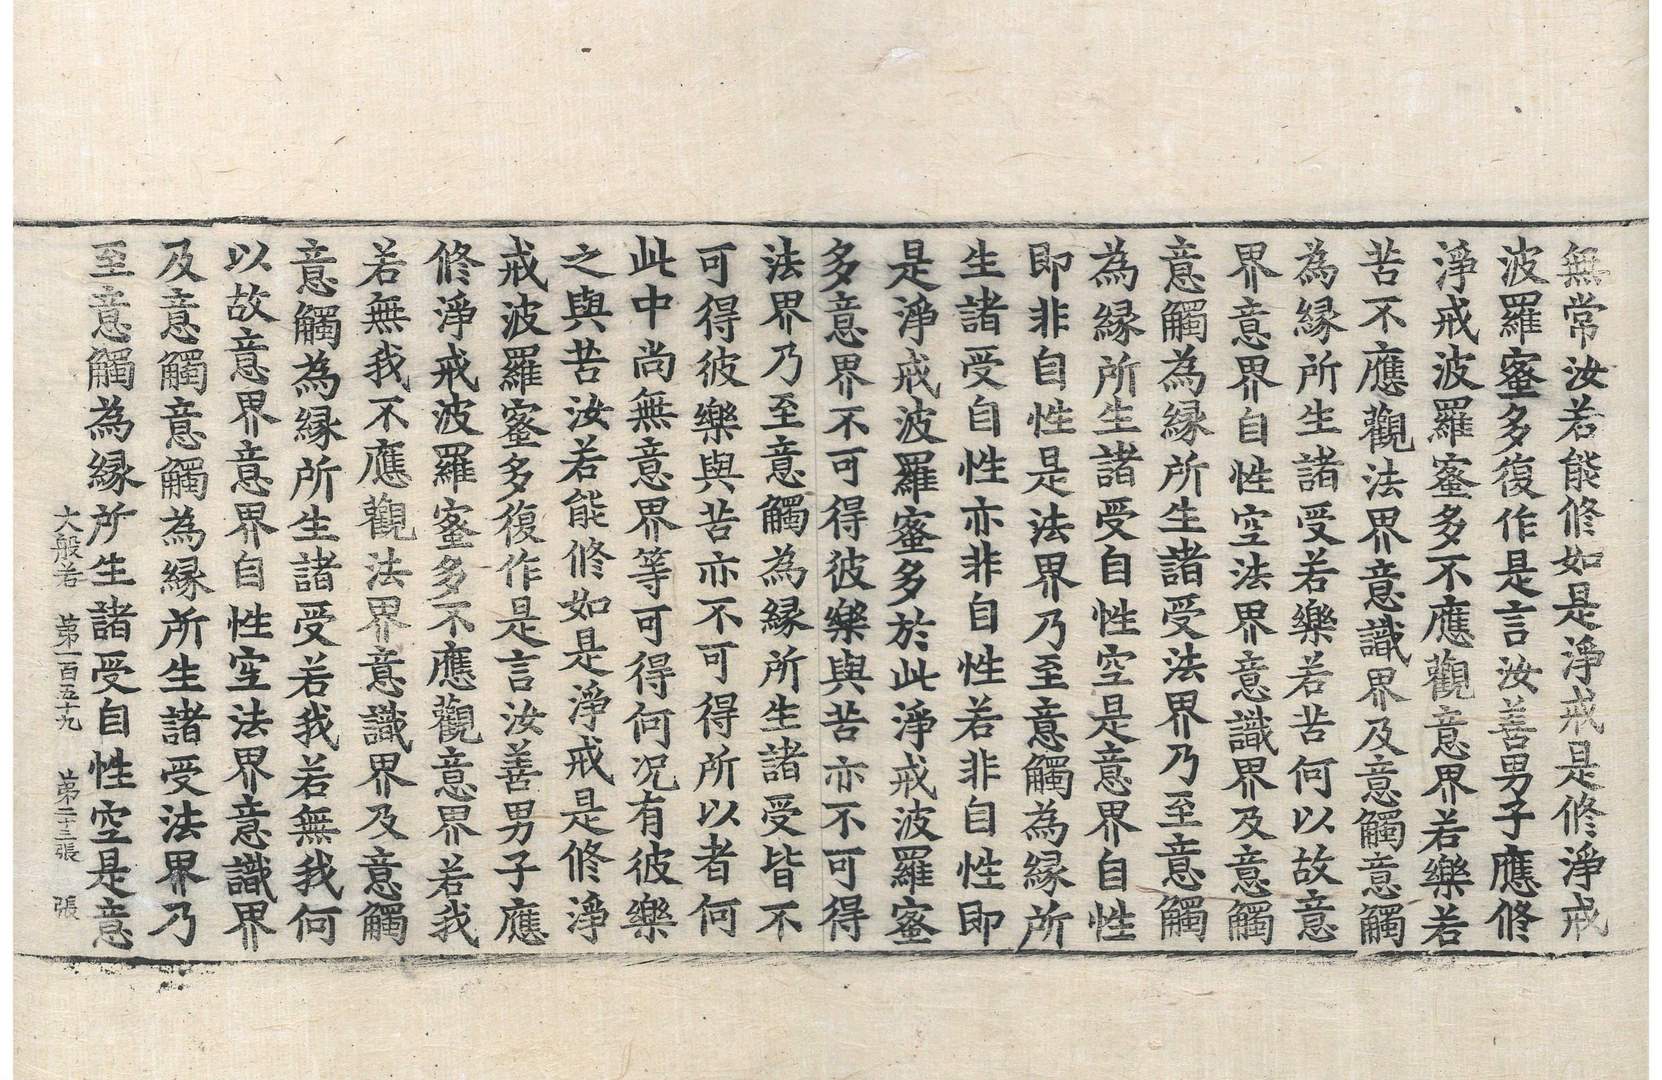 無常汝若能修如是淨戒是修淨戒
波羅蜜多復作是言汝善男子應修
淨戒波羅蜜多不應觀意界若樂若
苦不應觀法界意識界及意觸意觸
為緣所生諸受若樂若苦何以故意
界意界自性空法界意識界及意觸
意觸為緣所生諸受法界乃至意觸
為緣所生諸受自性空是意界自性
即非自性是法界乃至意觸為緣所
生諸受自性亦非自性若非自性即
是淨戒波羅蜜多於此淨戒波羅蜜
多意界不可得彼樂與苦亦不可得
法界乃至意觸為緣所生諸受皆不
可得彼樂與苦亦不可得所以者何
此中尚無意界等可得何況有彼樂
之與苦汝若能修如是淨戒是修淨
戒波羅蜜多復作是言汝善男子應
修淨戒波羅蜜多不應觀意界若我
若無我不應觀法界意識界及意觸
意觸為緣所生諸受若我若無我何
以故意界意界自性空法界意識界
及意觸意觸為緣所生諸受法界乃
至意觸為緣所生諸受自性空是意
大般若 第一百五十九 第二十三張 張